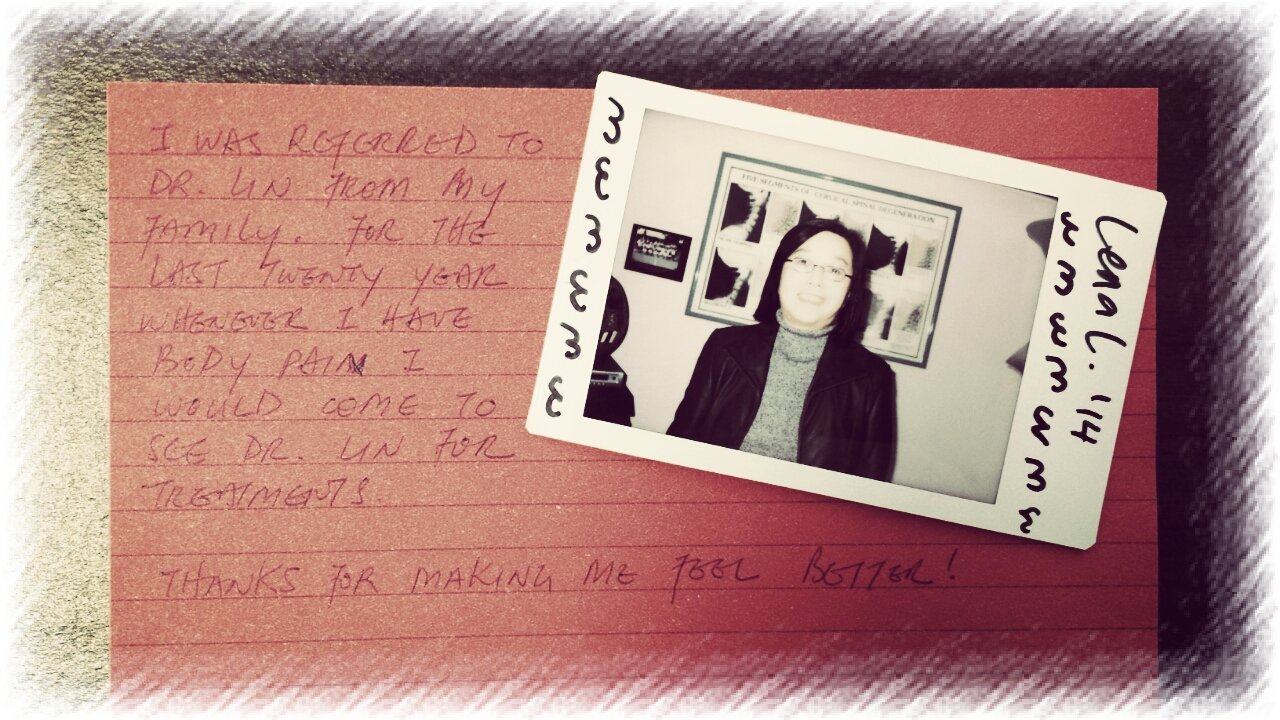 I WAS REFERRED TO
DR. LIN FROM MY
FAMILY. FOR THE
LAST TWENTY YEAR
WHENEVER I HAVE
BODY PAIN I
WOULD COME TO
SEE DR. LIN FOR
TREATMENTS.
THANKS FOR MAKING ME FEEL BETTER!
FIVE SEGMENTS OF CERVICAL SPINAL DEGENERATION
Lena L. '114